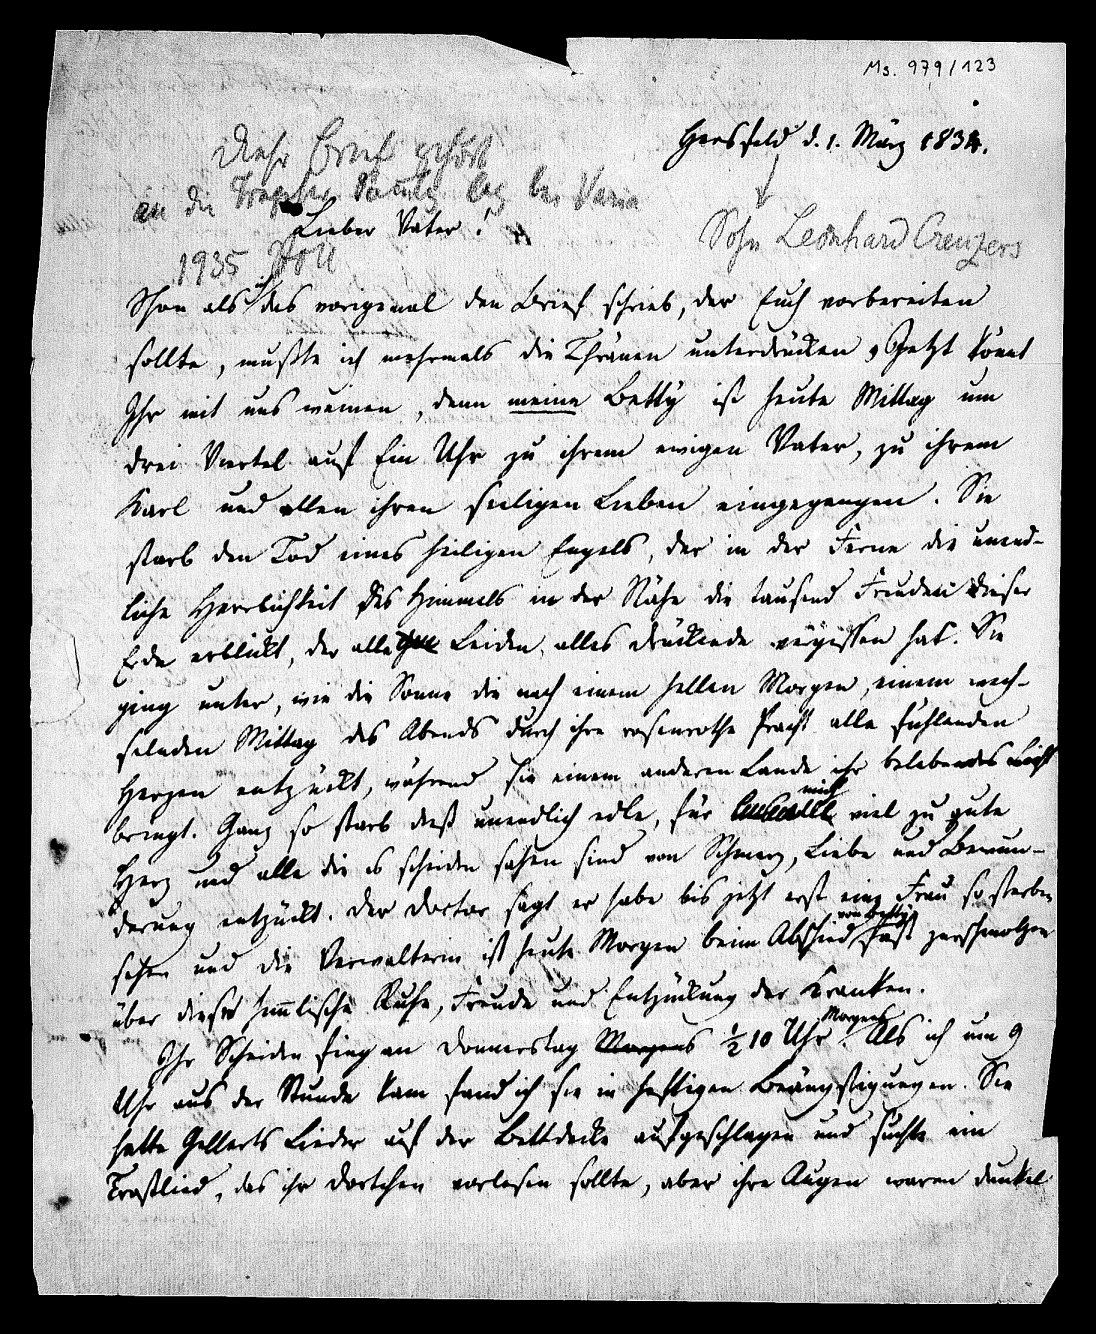 Ms. 979/123
Hersfeld d. 1. März 1834.
Dieser Brief gehört
an die Mappe Pauly lag bei Varia
Lieber Vater!
Sohn Leonhard Creuzers
1935 Noll
Schon als ich das vorigemal den Brief schrieb, der Euch vorbereiten
sollte, mußte ich mehrmals die Thränen unterdrücken, Jetzt könnt
Ihr mit uns weinen, denn meine Betty ist heute Mittag um
drei Viertel auf Ein Uhr zu ihrem ewigen Vater, zu ihrem
Karl und allen ihren seeligen Lieben eingegangen. Sie
starb den Tod eines heiligen Engels, der in der Ferne die unend-
liche Herrlichkeit des Himmels in der Nähe die tausend Freuden dieser
Erde erblickt, der alle Leiden, alles drückende vergessen hat. Sie
ging unter, wie die Sonne die nach einem hellen Morgen, einem wech-
selnden Mittag des Abends durch ihre rosenrothe Pracht alle fühlenden
Herzen entzückt, während sie einem anderen Lande ihr belebendes Licht
bringt. Ganz so starb dieß unendlich edle, für mich viel zu gute
Herz und alle die es scheiden sahen sind von Schmerz, Liebe und Bewun-
derung entzückt. Der Doctor sagt er habe bis jetzt erst eine Frau so sterben
sehen und die Verwalterin ist heute Morgen beim Abschied von Betty fast zerschmolzen
über diese himmlische Ruhe, Freude und Entzückung der Kranken.
Ihr Scheiden fing an Donnerstag Morgens ½ 10 Uhr Morgens. Als ich um 9
Uhr aus der Stunde kam fand ich sie in heftigen Beängstigungen. Sie
hatte Gellerts Lieder auf der Bettdecke aufgeschlagen und suchte ein
Trostlied, das ihr Dortchen vorlesen sollte, aber ihre Augen waren dunkel